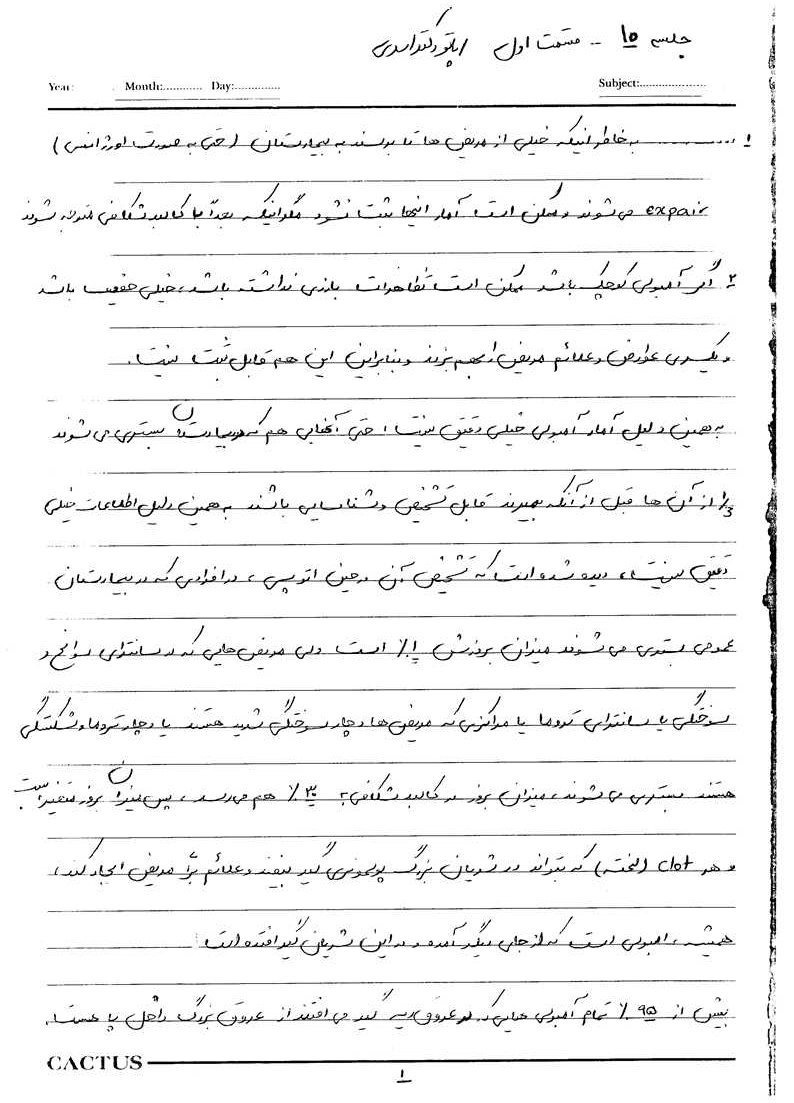 جلسه ۱۵ - قسمت اول اپتو دکتر اسدی
Year: Month:............ Day:............. Subject:....................
۱ .......... به خاطر اینکه خیلی از مریض ها تا برسند به بیمارستان (حتی به صورت اورژانس)
expair می شوند و ممکن است آمار اینها ثبت نشود مگر اینکه بعداً با کالبد شکافی متوجه شوند
۲ اگر آمبولی کوچک باشد ممکن است تظاهرات بارزی نداشته باشد، خیلی خفیف باشد
و یکسری عوارض و علائم مریض را بهم بزند و بنابراین این هم قابل ثبت نیست.
به همین دلیل آمار آمبولی خیلی دقیق نیست، حتی آنهایی هم که در بیمارستان بستری می شوند
۱/۳ از آن ها قبل از آنکه بمیرند قابل تشخیص و شناسایی باشند به همین دلیل اطلاعات خیلی
دقیق نیست، دیده شده است که تشخیص آن در حین اتوپسی، در افرادی که در بیمارستان
عمومی بستری می شوند میزان بروزش ۱٪ است ولی مریض هایی که در سانترای سوانح و
سوختگی یا سانترای تروما یا مراکزی که مریض ها دچار سوختگی شدید هستند یا دچار تروما و شکستگی
هستند بستری می شوند، میزان بروز در کالبد شکافی به ۳۰٪ هم می رسد، پس میزان بروز متغیر است
و هر clot (لخته) که بتواند در شریان بزرگ پولمونری گیر بیفتد و علائم برای مریض ایجاد کند،
همیشه، آمبولی است که از جای دیگر آمده و در این شریان گیر افتاده است.
بیش از ۹۵٪ تمام آمبولی هایی که در عروق ریه گیر می افتند از عروق بزرگ داخل پا هست.
CACTUS
۱